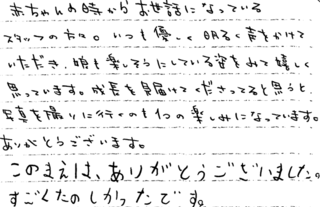 赤ちゃんの時からお世話になっている
スタッフの方々。いつも優しく明るく声をかけて
いただき、娘も楽しそうにしている姿をみて嬉しく
思っています。成長を見届けてくださってると思うと、
写真を撮りに行くのも1つの楽しみになっています。
ありがとうございます。
このまえは、ありがとうございました。
すごくたのしかったです。